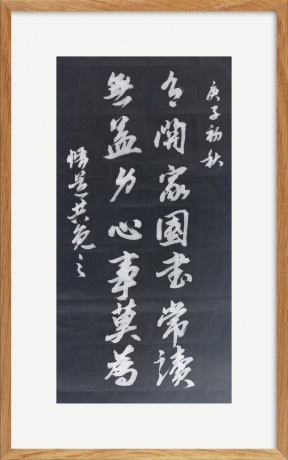 庚子初秋
有關家國書常讀
無益身心事莫為
悟共勉之